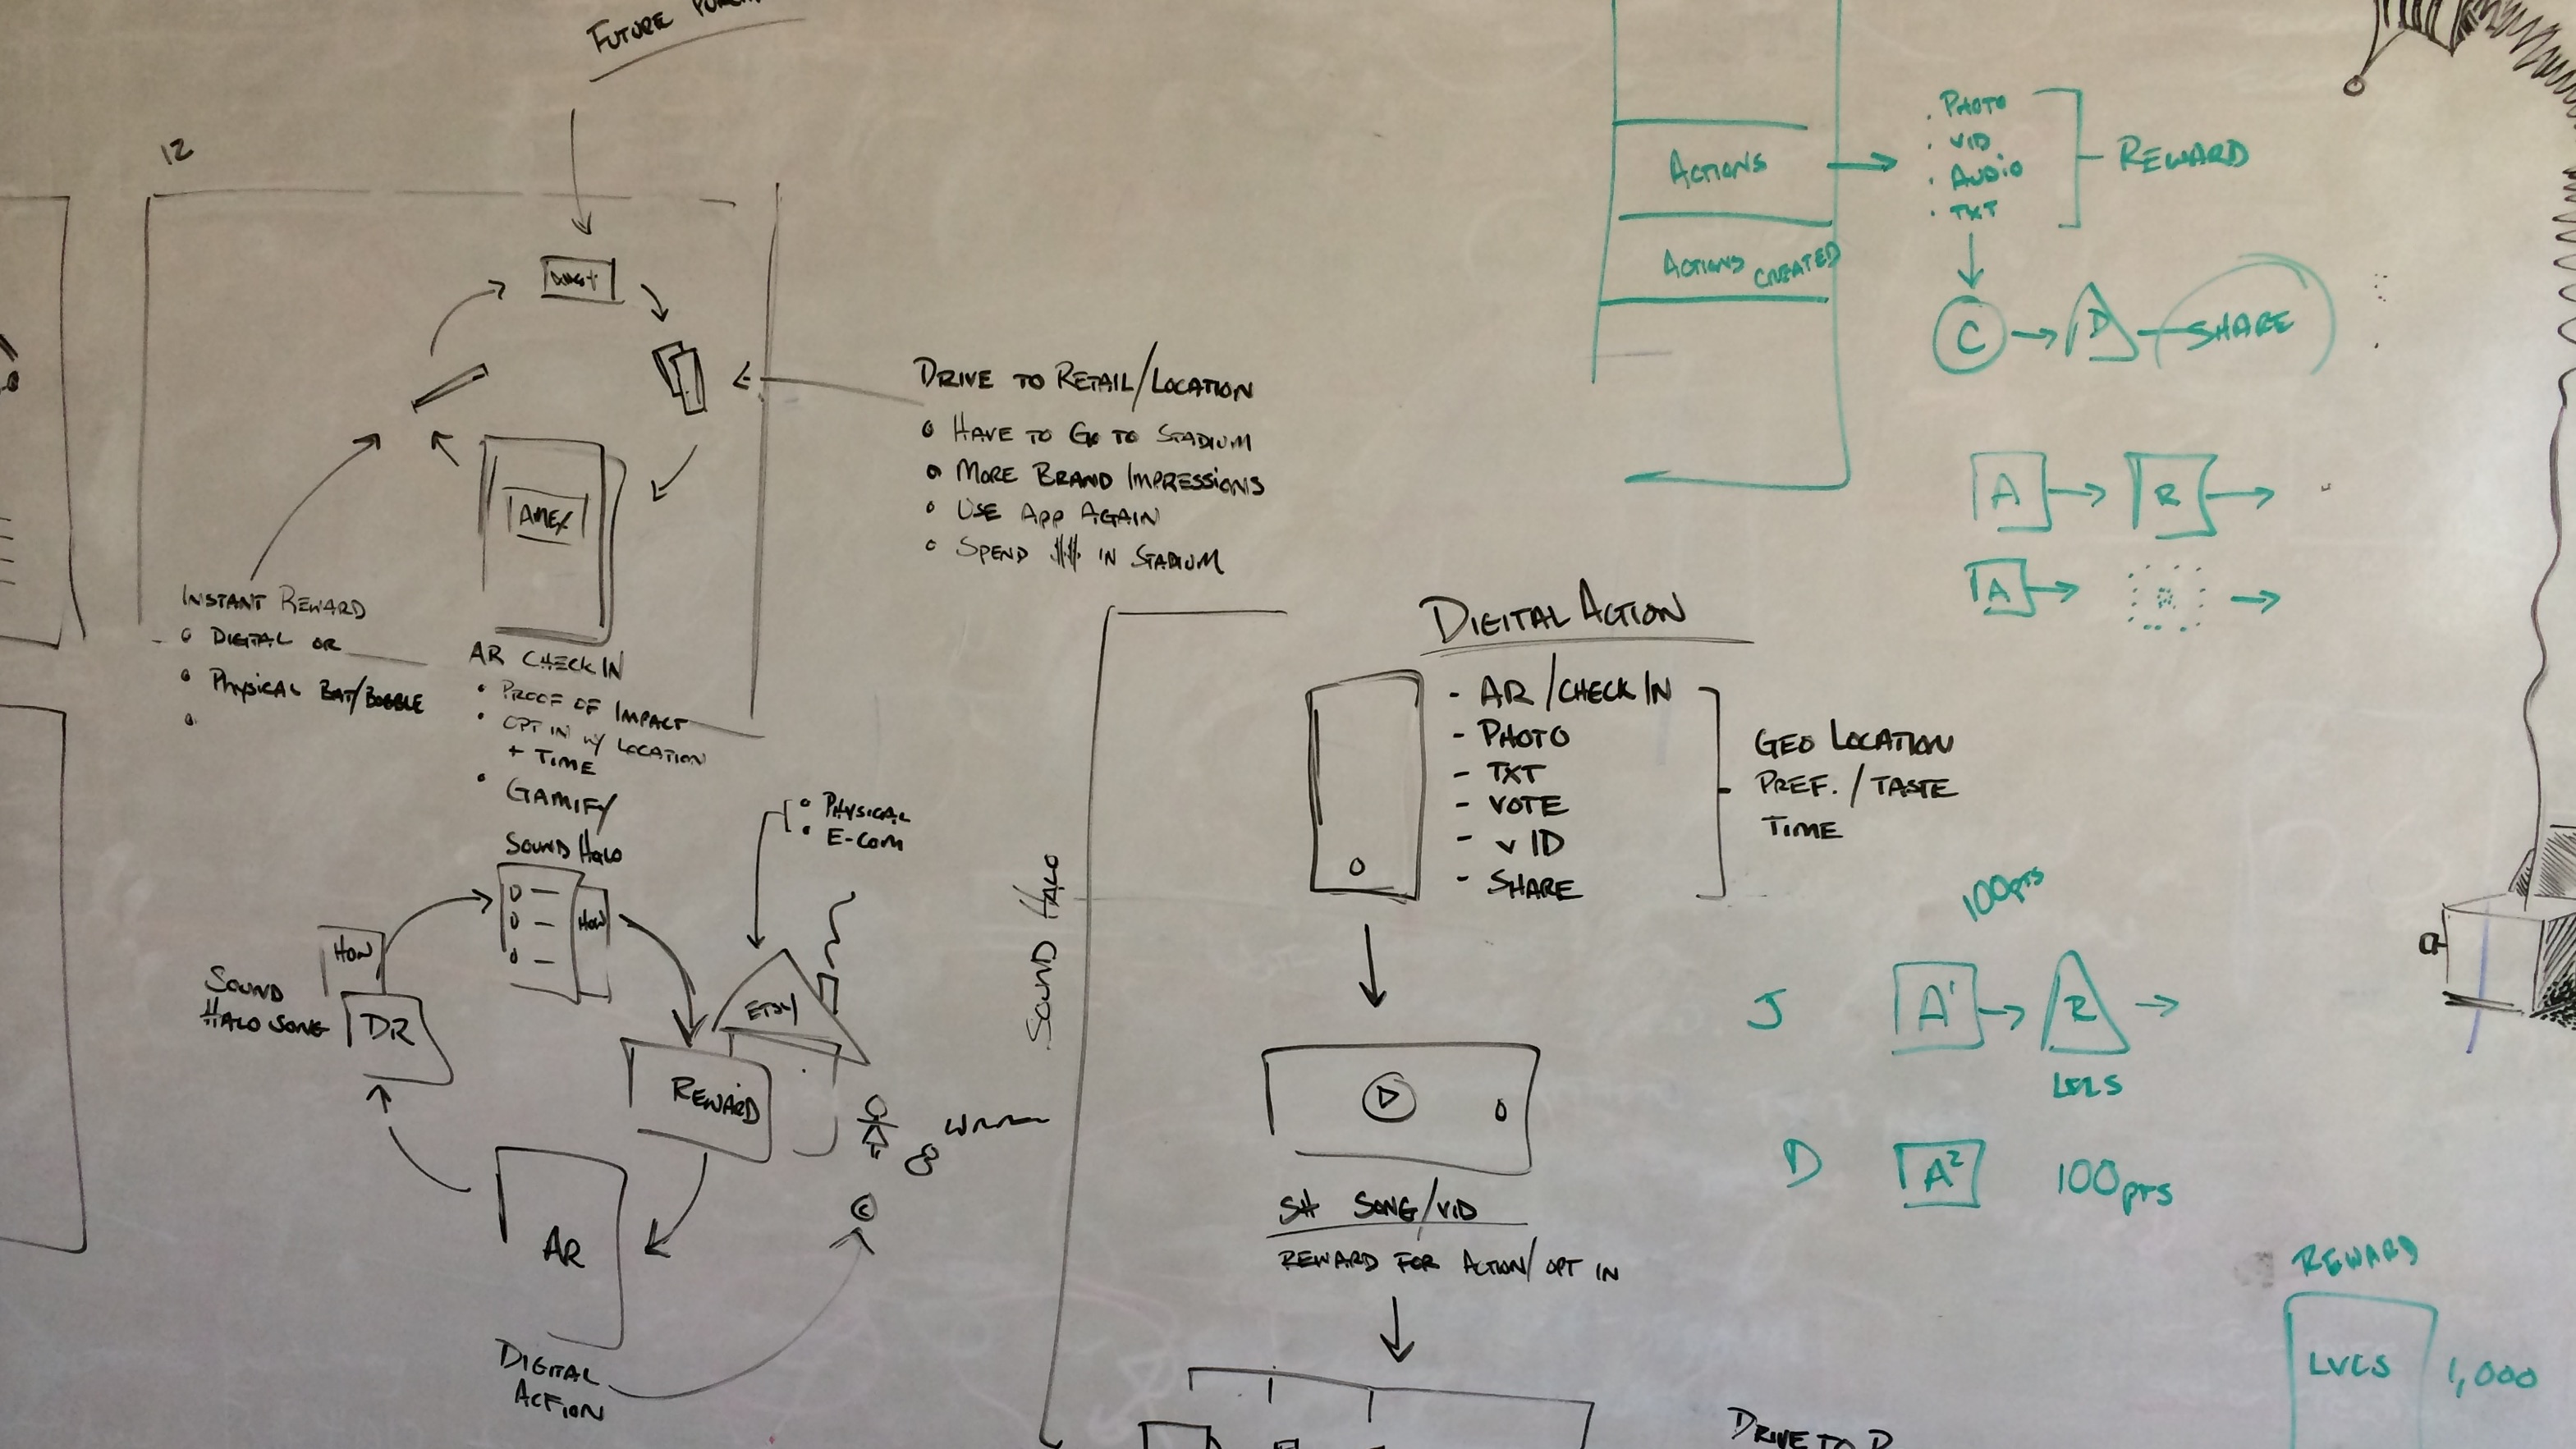 FUTURE
12
AMEX
DRIVE TO RETAIL/LOCATION
HAVE TO GO TO STADIUM
MORE BRAND IMPRESSIONS
USE APP AGAIN
SPEND $$ IN STADIUM
INSTANT REWARD
DIGITAL OR
PHYSICAL BAT/BOBBLE
AR CHECK IN
PROOF OF IMPACT
OPT IN W/ LOCATION
+ TIME
GAMIFY
SOUND HALO
PHYSICAL
E-COM
HOW
HOW
SOUND
HALO SONG
DR
ETSY
REWARD
AR
©
DIGITAL
ACTION
SOUND HALO
DIGITAL ACTION
- AR/CHECK IN
- PHOTO
- TXT
- VOTE
- VID
- SHARE
GEO LOCATION
PREF./TASTE
TIME
SH SONG/VID
REWARD FOR ACTION/OPT IN
DRIVE TO
ACTIONS
ACTIONS CREATED
PHOTO
VID
AUDIO
TXT
REWARD
C
D
SHARE
A
R
A
R
100pts
J
A1
R
D
A2
100pts
REWARD
LVLS
1,000